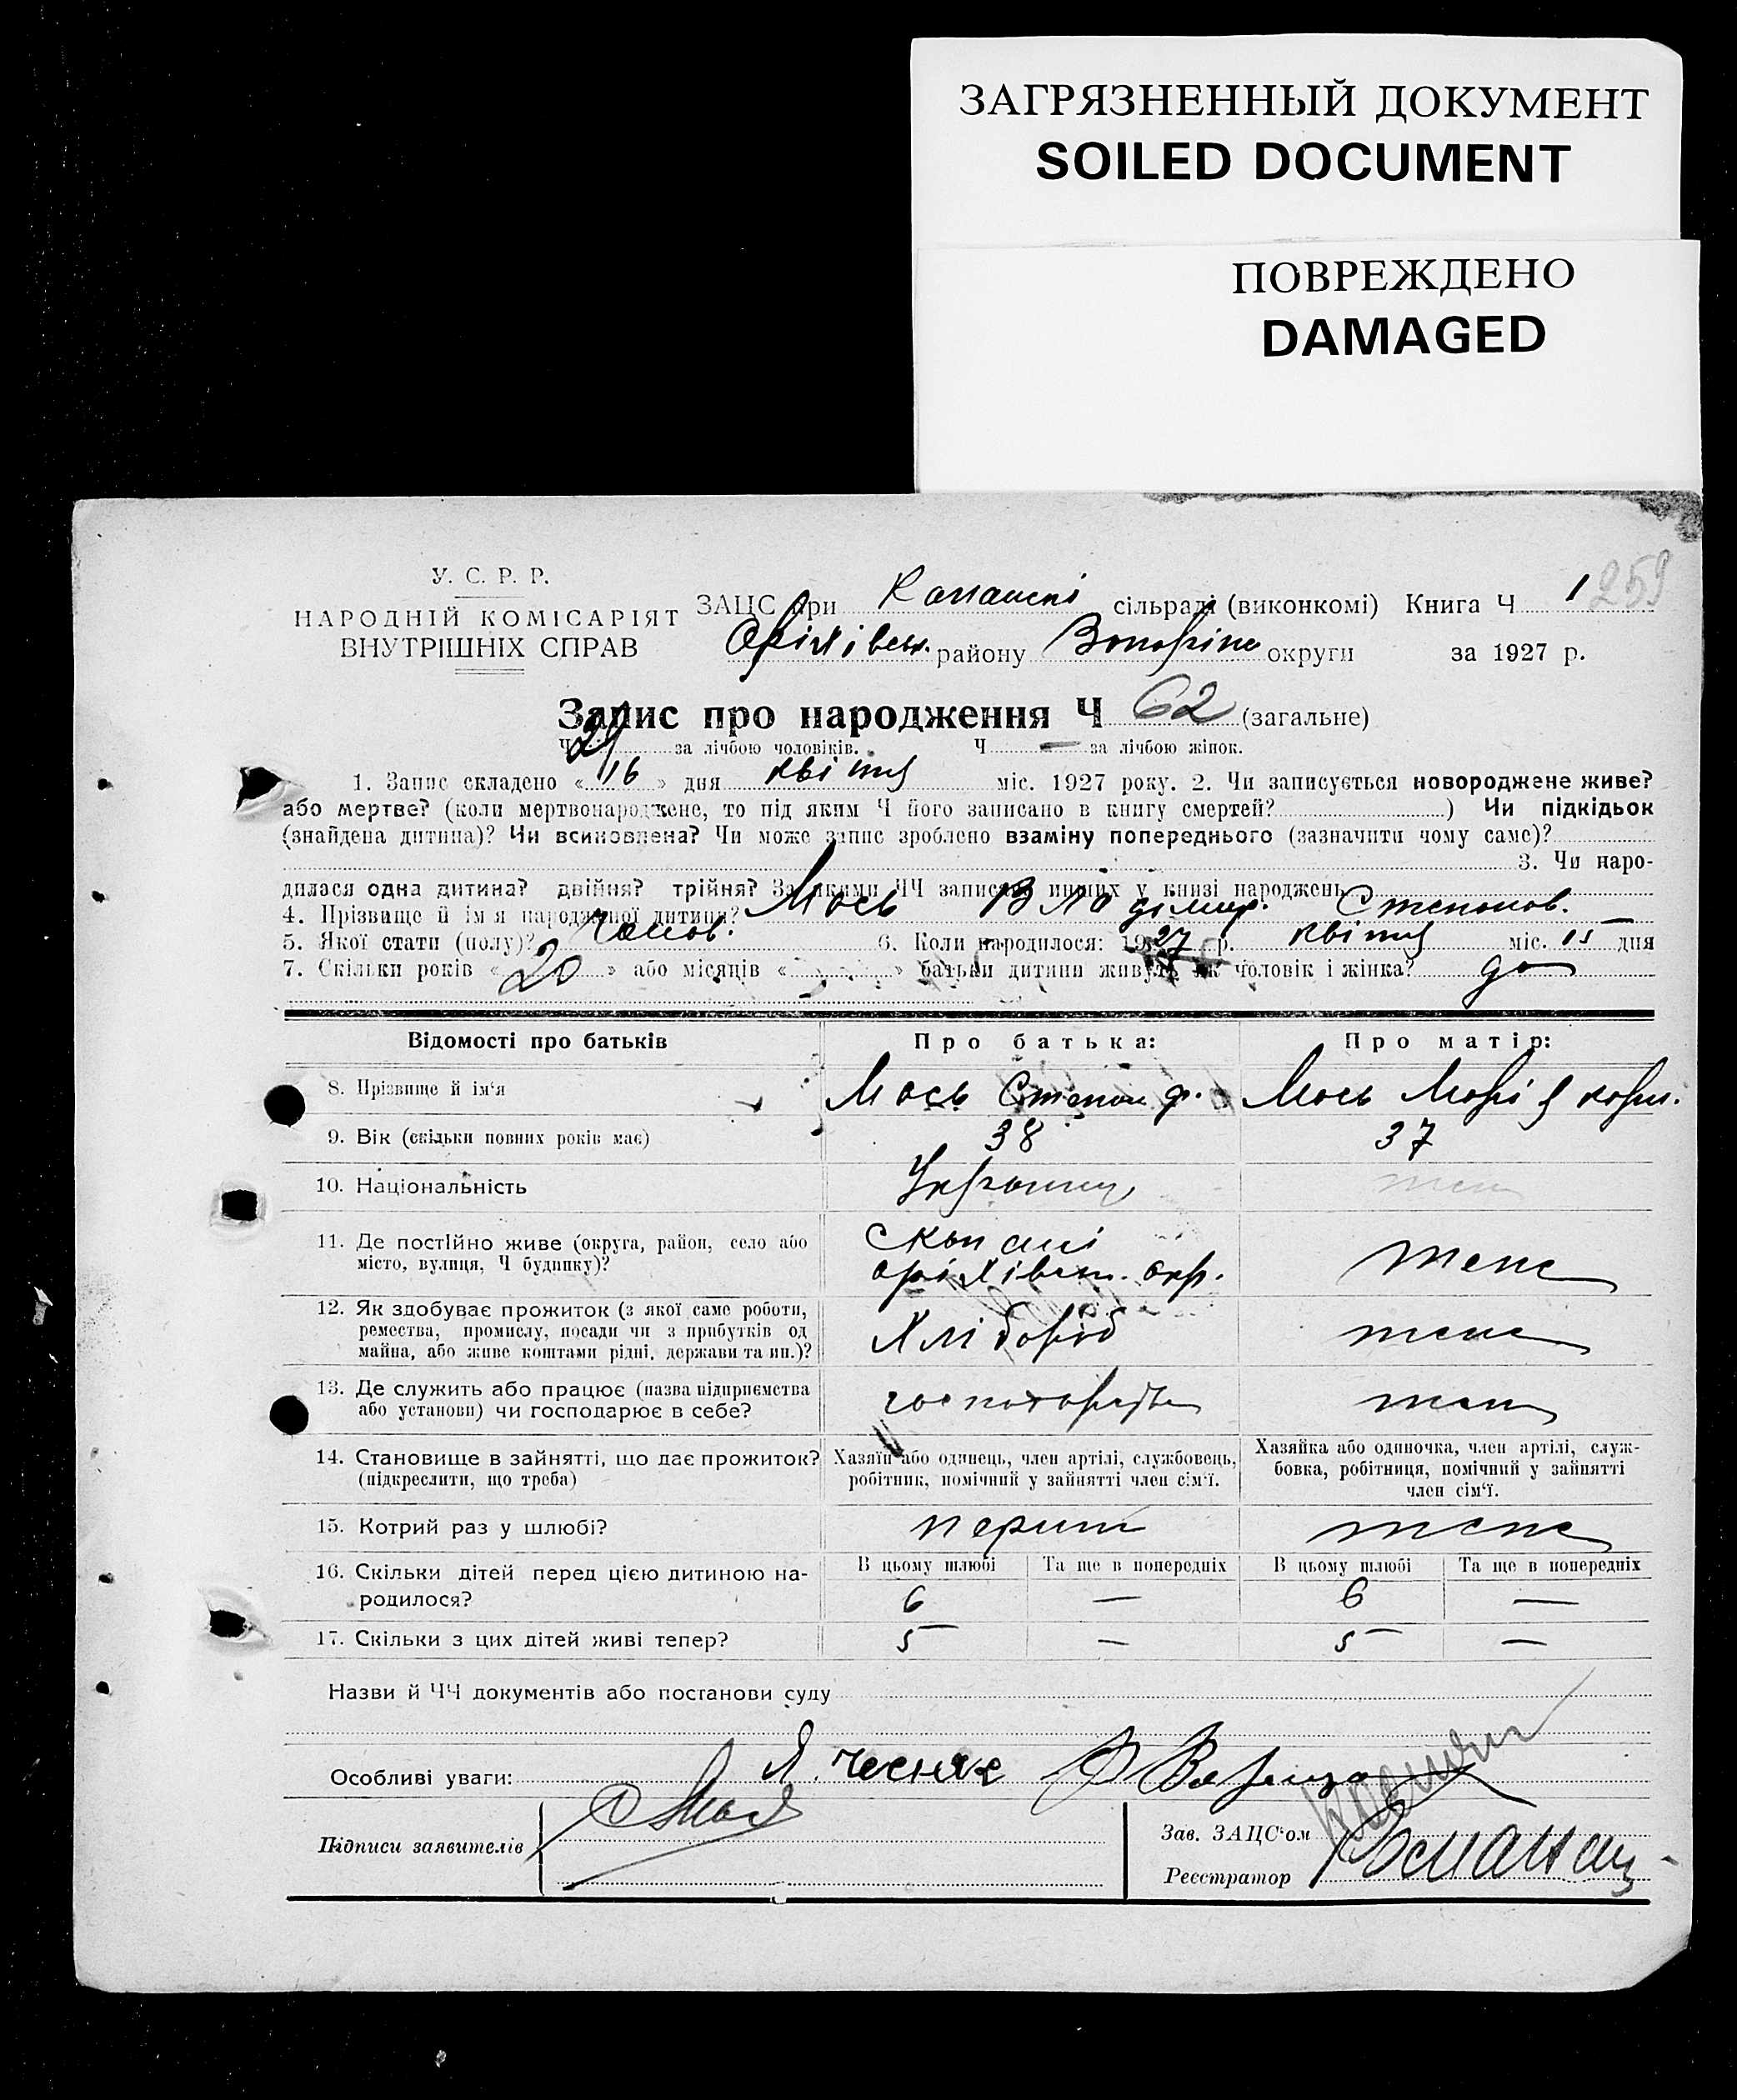 ЗАГРЯЗНЕННЫЙ ДОКУМЕНТ
SOILED DOCUMENT
ПОВРЕЖДЕНО
DAMAGED
У. С. Р. Р.
НАРОДНІЙ КОМІСАРІЯТ
ВНУТРІШНІХ СПРАВ
ЗАЦС при сільраді (виконкомі) Книга Ч 1 259
району округи за 1927 р.
Запис про народження Ч 62 (загальне)
Ч за лічбою чоловіків. Ч — за лічбою жінок.
1. Запис складено « 16 » дня квітня міс. 1927 року. 2. Чи записується новороджене живе?
або мертве? (коли мертвонароджене, то під яким Ч його записано в книгу смертей? ) Чи підкідьок
(знайдена дитина)? Чи всиновлена? Чи може запис зроблено взаміну попереднього (зазначити чому саме)?
3. Чи наро-
дилася одна дитина? двійня? трійня? За якими ЧЧ записано инших у книзі народжень
4. Прізвище й ім'я народженої дитини? Мось Владімир. Степонов. —
5. Якої стати (полу)? 6. Коли народилося: 1927 р. квітня міс. 15 дня
7. Скільки років « 20 » або місяців « » батьки дитини живуть як чоловік і жінка? до
Відомості про батьків Про батька: Про матір:
8. Прізвище й ім'я Мось Степон ф. Мось Морія корн.
9. Вік (скільки повних років має) 38 37
10. Національність
11. Де постійно живе (округа, район, село або місто, вулиця, Ч будинку)?
Скопані
оріхівськ. окр.
теж
12. Як здобуває прожиток (з якої саме роботи, ремества, промислу, посади чи з прибутків од майна, або живе коштами рідні, держави та ин.)?
Хлібороб
13. Де служить або працює (назва підприємства
або установи) чи господарює в себе?
14. Становище в зайнятті, що дає прожиток?
(підкреслити, що треба)
Хазяїн або одинець, член артілі, службовець,
робітник, помічний у зайнятті член сім'ї.
Хазяйка або одиночка, член артілі, служ-
бовка, робітниця, помічний у зайнятті
член сім'ї.
15. Котрий раз у шлюбі?
16. Скільки дітей перед цією дитиною на-
родилося?
В цьому шлюбі Та ще в попередніх В цьому шлюбі Та ще в попередніх
6 — 6 —
17. Скільки з цих дітей живі тепер? 5 — 5 —
Назви й ЧЧ документів або постанови суду
Особливі уваги: Я. Чесняк
Підписи заявителів
Зав. ЗАЦС'ом
Реєстратор